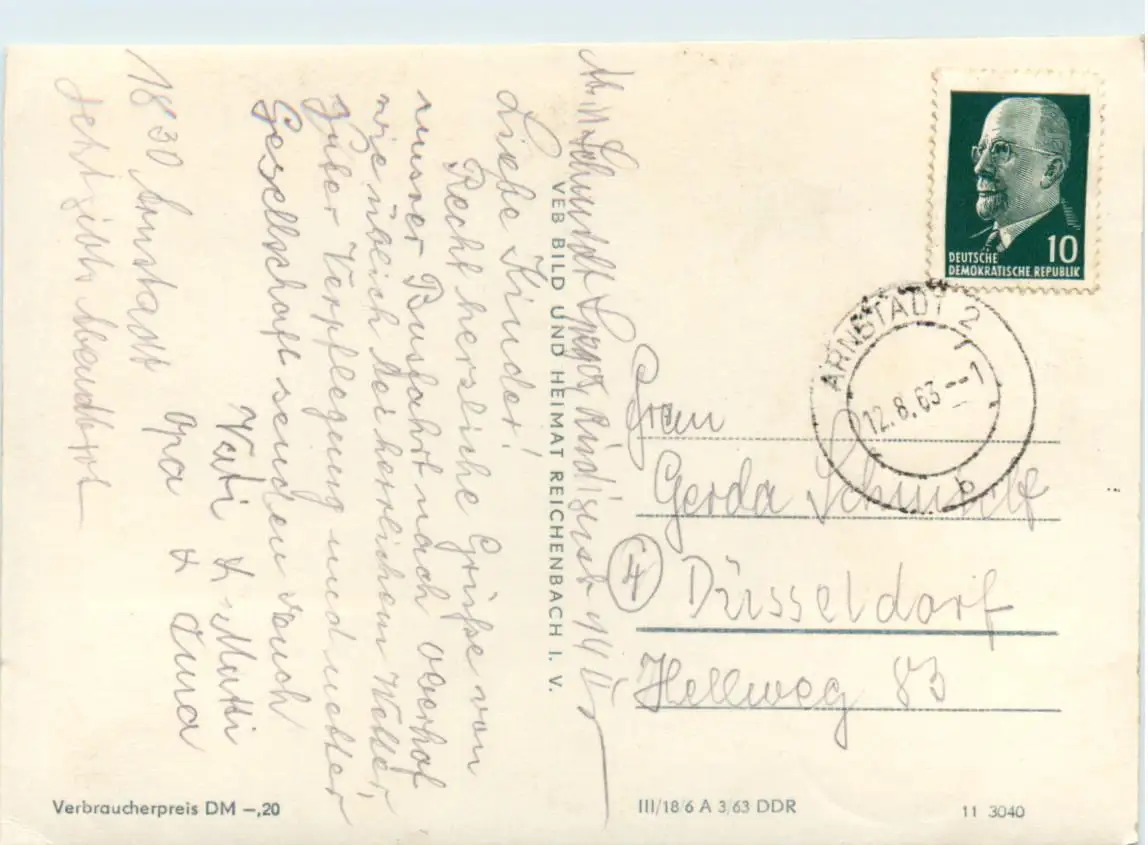 Liebe Kinder!
Recht herzliche Grüße von
unsrer Busfahrt nach Oberhof
wie üblich bei herrlichem Wetter,
guter Verpflegung und netter
Gesellschaft senden euch
Vati & Mutti
Opa & Oma
18³⁰ Arnstadt
Jetzt gibts Abendbrot
VEB BILD UND HEIMAT REICHENBACH I. V.
DEUTSCHE
DEMOKRATISCHE REPUBLIK
10
ARNSTADT 2
12.8.63--1
b
Frau
Gerda Schmidt
4 Düsseldorf
Hellweg 83
Verbraucherpreis DM —,20
III/18/6 A 3/63 DDR
11 3040